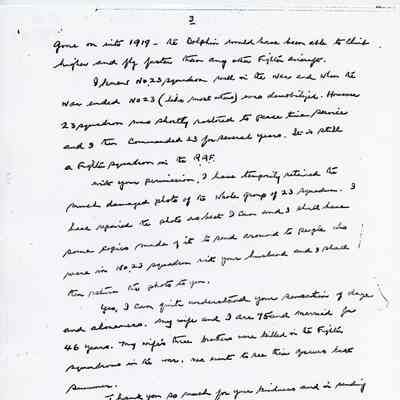 3
gone on into 1919 - the Dolphin would have been able to climb
higher and fly faster than any other Fighter aircraft.
I knew No.23 squadron well in the war and when the
war ended No 23 (like most others) was demobilized. However
23 squadron was shortly restored to peace time service
and I then commanded 23 for several years. It is still
a Fighter squadron in the R.A.F.
With your permission, I have temporarily retained the
much damaged photo of the whole group of 23 squadron. I
have repaired the photo as best I can and I shall have
some copies made of it to send around to people who
were in No.23 squadron with your husband and I shall
then return the photo to you.
Yes, I can quite understand your sensation of
and aloneness. My wife and I are 75 and married for
46 years. My wife's three brothers were killed in the Fighter
squadrons in the war. We went to see their graves last
summer.
I thank you so much for your kindness and in sending